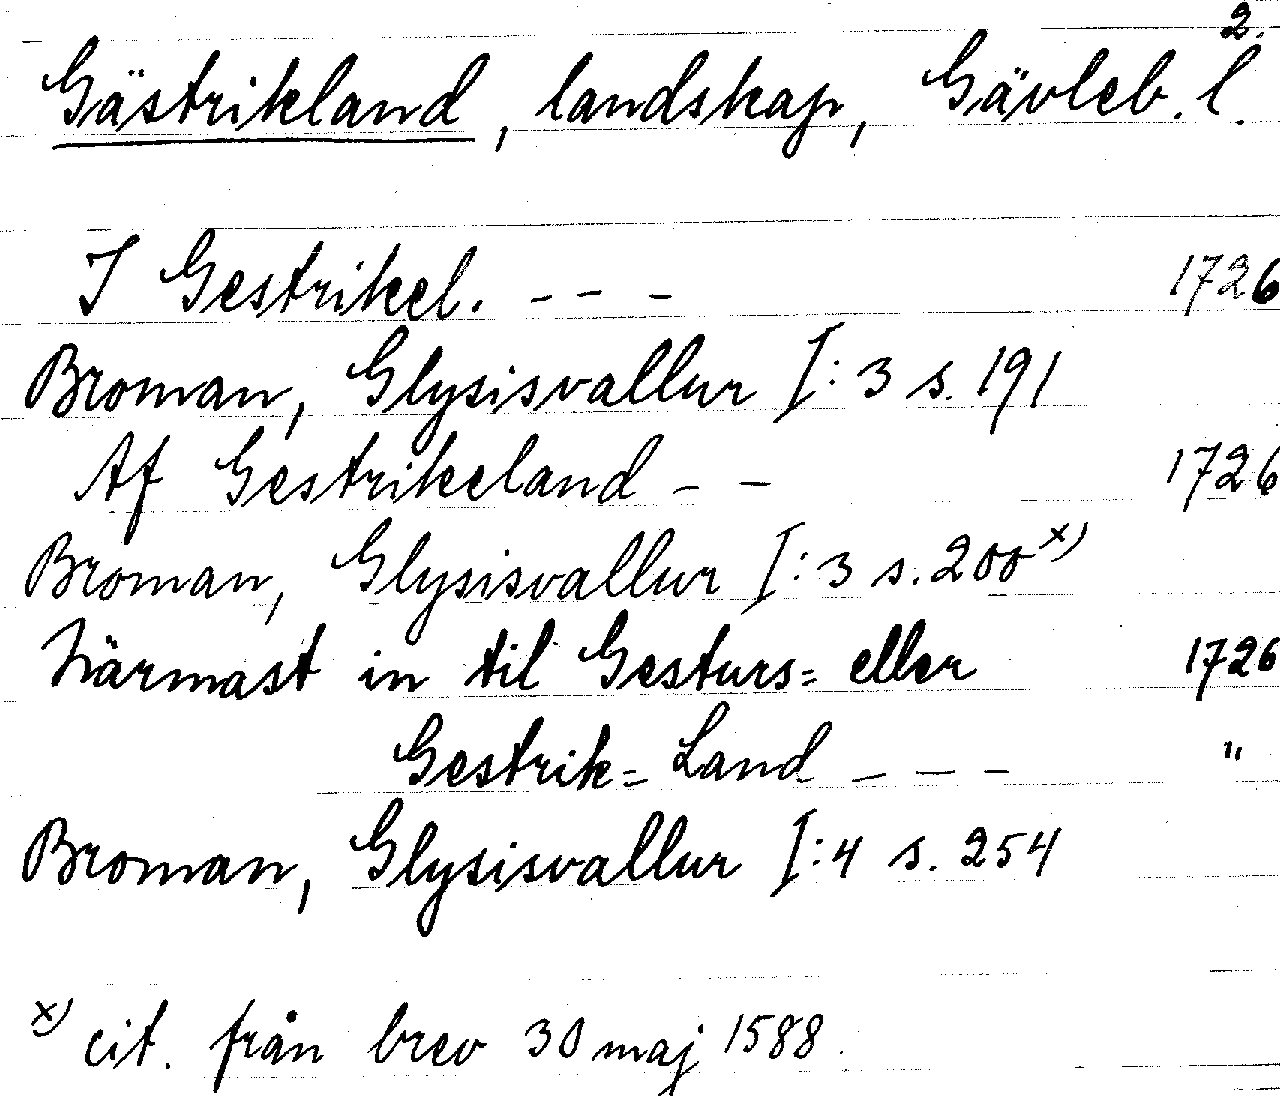 2.
Gästrikland, landskap, Gävleb. l.
I Gestrikel. - - - 1726
Broman, Glysisvallur I:3 s. 191
Af Gestrikeland - - 1726
Broman, Glysisvallur I:3 s. 200 x)
Närmast in til Gesturs= eller 1726
Gestrik= Land - - - "
Broman, Glysisvallur I:4 s. 254
x) cit. från brev 30 maj 1588.